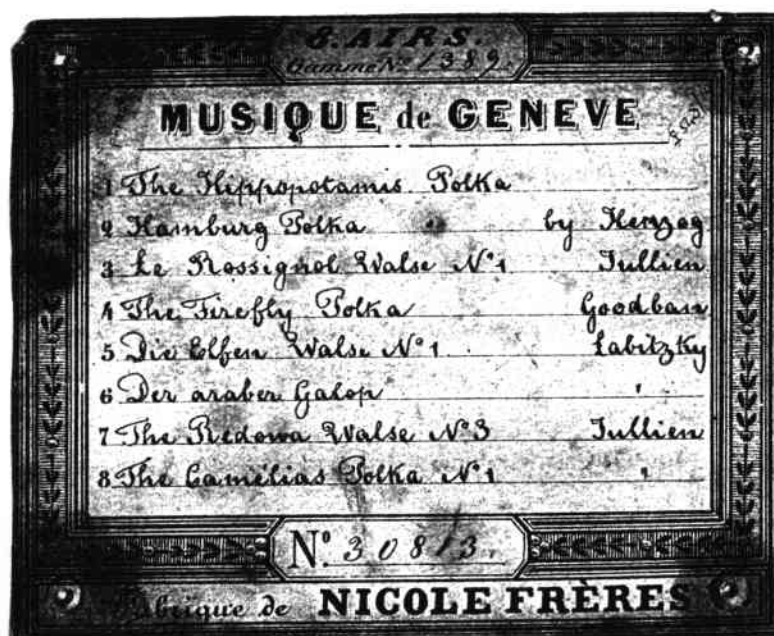 8. AIRS.
Gamme No. 1389.
MUSIQUE de GENEVE
1 The Hippopotamis Polka
2 Hamburg Polka " by Herzog
3 Le Rossignol Walse No. 1 Jullien
4 The Firefly Polka Goodban
5 Die Elfen Walse No. 1 Labitzky
6 Der araber Galop "
7 The Redowa Walse No. 3 Jullien
8 The Camélias Polka No. 1 "
No. 30813.
Fabrique de NICOLE FRÈRES